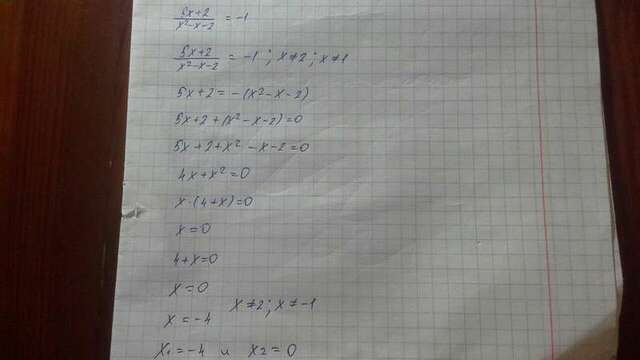 5x+2/x²-x-2 = -1
5x+2/x²-x-2 = -1 ; x≠2 ; x≠1
5x+2 = -(x²-x-2)
5x+2+(x²-x-2)=0
5x+2+x²-x-2=0
4x+x²=0
x·(4+x)=0
x=0
4+x=0
x=0
x≠2; x≠-1
x=-4
x₁=-4 и x₂=0